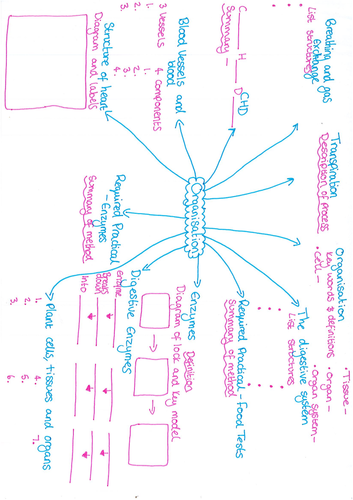 Organisation
Breathing and gas
Exchange
• List structures
•
•
•
CHD
C
H
D
Summary -
Blood Vessels and
blood
3 Vessels
1.
2.
3.
4 Components
1.
2.
3.
4.
Structure of heart
Diagram and labels
Required Practical
- Enzymes
Summary of method
Plant cells, tissues and organs
1.
2.
3.
4.
5.
6.
7.
Digestive Enzymes
Enzyme
Breaks
down
Into
Enzymes
Definition
Diagram of lock and key model
Required Practical - Food Tests
Summary of method
The digestive system
List structures
Organisation
Key words & definitions
• Cell -
• Tissue -
• Organ -
• Organ system -
Transpiration
Description of process